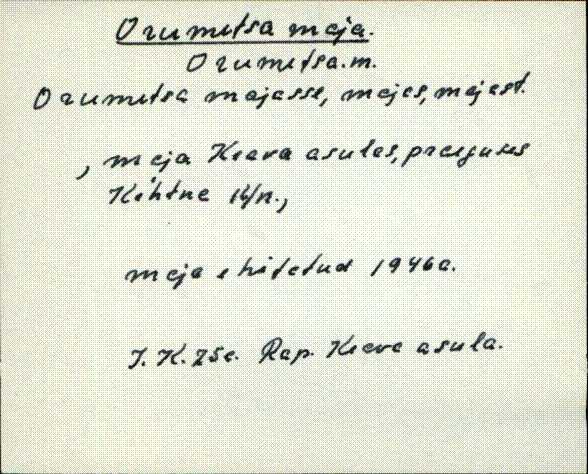 Orumetsa maja.
Orumetsa.m.
Orumetsa majasse, majas, majast.
, maja Keava asulas, praeguses
Kehtne k/n.,
maja ehitatud 1946a.
Rap. Keava asula.